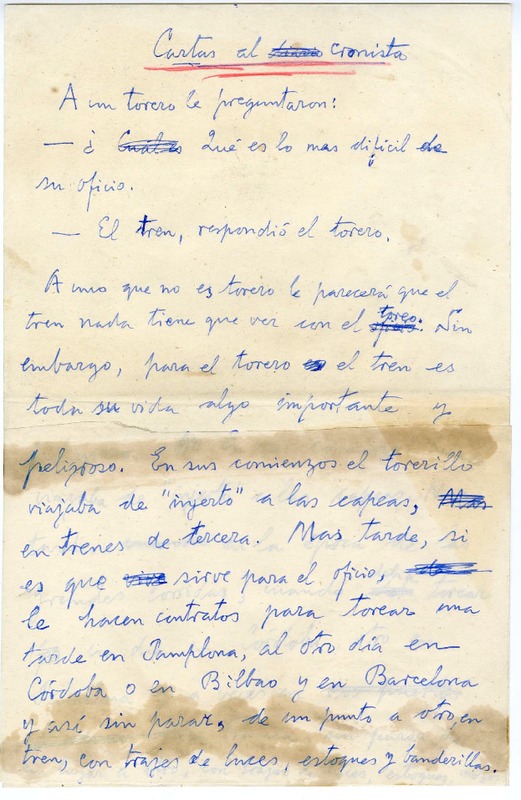 Cartas al cronista
A un torero le preguntaron:
— ¿ Qué es lo mas difícil de
su oficio.
— El tren, respondió el torero.
A uno que no es torero le parecerá que el
tren nada tiene que ver con el toreo. Sin
embargo, para el torero el tren es
toda su vida algo importante y
peligroso. En sus comienzos el torerillo
viajaba de "injerto" a las capeas,
en trenes de tercera. Mas tarde, si
es que sirve para el oficio,
le hacen contratos para torear una
tarde en Pamplona, al otro día en
Córdoba o en Bilbao y en Barcelona
y así sin parar, de un punto a otro, en
tren, con trajes de luces, estoques y banderillas.